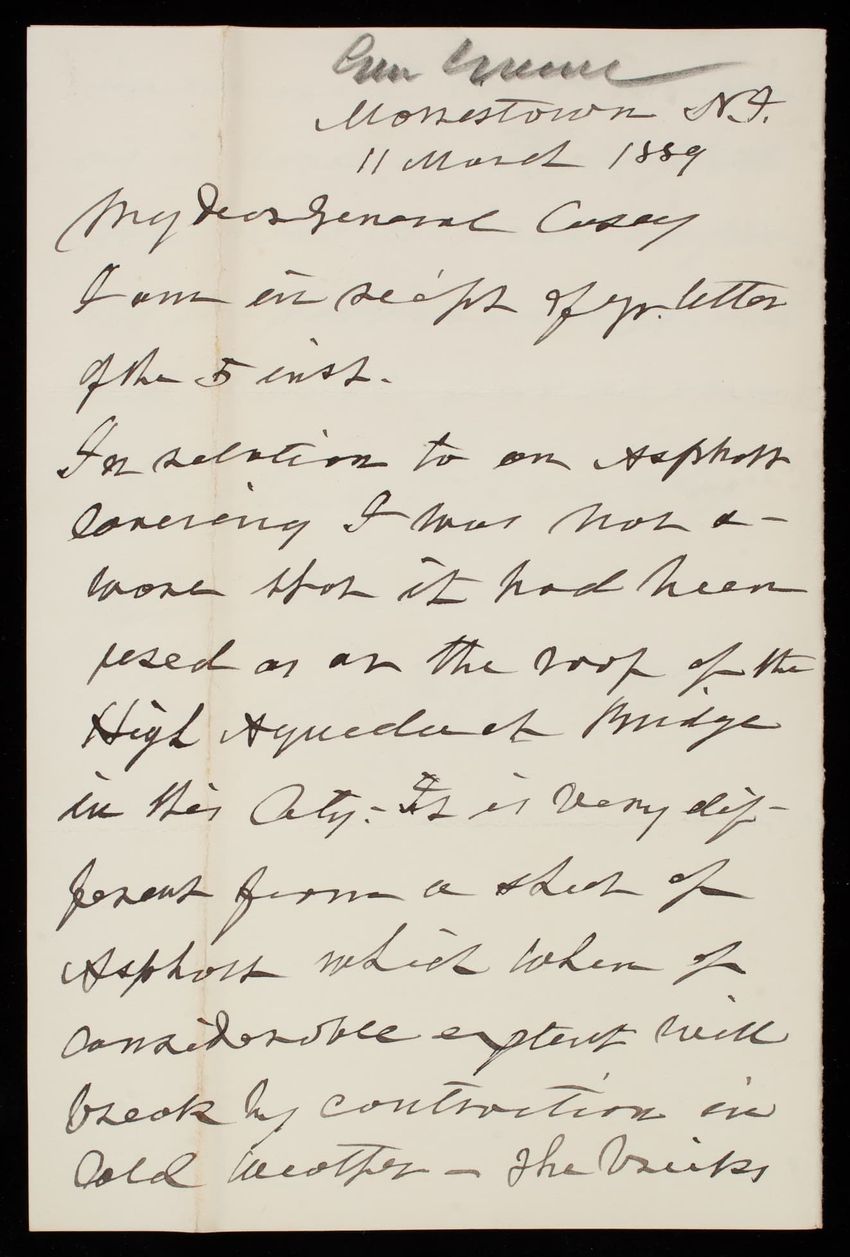 Gen Greene
Morristown N.J.
11 March 1889
My dear General Casey
I am in rec'pt of yr. letter
of the 5 inst.
In relation to an Asphalt
covering I was not a-
ware that it had been
used as on the roof of the
High Aqueduct Bridge
in this City - It is very dif-
ferent from a sheet of
Asphalt which when of
considerable extent will
break by contraction in
Cold weather - The bricks